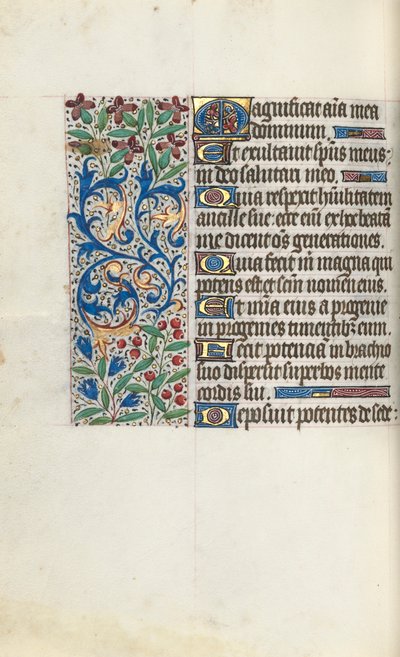 Magnificat aīa mea
dominum.
Et exultavit spūs meus:
in deo salutari meo.
Quia respexit hūilitatem
ancille sue: ecce eīm ex hoc beatā
me dicent oēs generationes.
Quia fecit m̄ magna qui
potens est: et scm̄ nomen eius.
Et mīa eius a progenie
in progenies timentibz eum.
Fecit potenciā in brachio
suo dispersit superbos mente
cordis sui.
Deposuit potentes de sede: